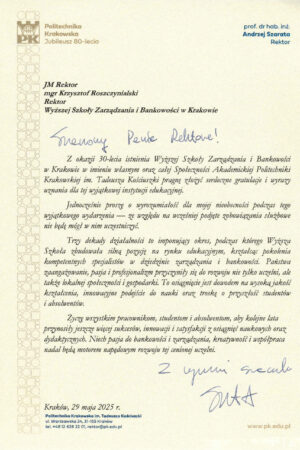 Politechnika
Krakowska
Jubileusz 80-lecia
prof. dr hab. inż.
Andrzej Szarata
Rektor
JM Rektor
mgr Krzysztof Roszczynialski
Rektor
Wyższej Szkoły Zarządzania i Bankowości w Krakowie
Szanowny Panie Rektorze!
Z okazji 30-lecia istnienia Wyższej Szkoły Zarządzania i Bankowości
w Krakowie w imieniu własnym oraz całej Społeczności Akademickiej Politechniki
Krakowskiej im. Tadeusza Kościuszki pragnę złożyć serdeczne gratulacje i wyrazy
uznania dla tej wyjątkowej instytucji edukacyjnej.
Jednocześnie proszę o wyrozumiałość dla mojej nieobecności podczas tego
wyjątkowego wydarzenia — ze względu na wcześniej podjęte zobowiązania służbowe
nie będę mógł w nim uczestniczyć.
Trzy dekady działalności to imponujący okres, podczas którego Wyższa
Szkoła zbudowała silną pozycję na rynku edukacyjnym, kształcąc pokolenia
kompetentnych specjalistów w dziedzinie zarządzania i bankowości. Państwa
zaangażowanie, pasja i profesjonalizm przyczyniły się do rozwoju nie tylko uczelni, ale
także lokalnej społeczności i gospodarki. To osiągnięcie jest dowodem na wysoką jakość
kształcenia, innowacyjne podejście do nauki oraz troskę o przyszłość studentów
i absolwentów.
Życzę wszystkim pracownikom, studentom i absolwentom, aby kolejne lata
przyniosły jeszcze więcej sukcesów, innowacji i satysfakcji z osiągnięć naukowych oraz
dydaktycznych. Niech pasja do bankowości i zarządzania, kreatywność i współpraca
nadal będą motorem napędowym rozwoju tej cenionej uczelni.
Z wyrazami szacunku
Kraków, 29 maja 2025 r.
Politechnika Krakowska im. Tadeusza Kościuszki
ul. Warszawska 24, 31-155 Kraków
tel. +48 12 628 22 01, rektor@pk.edu.pl
www.pk.edu.pl